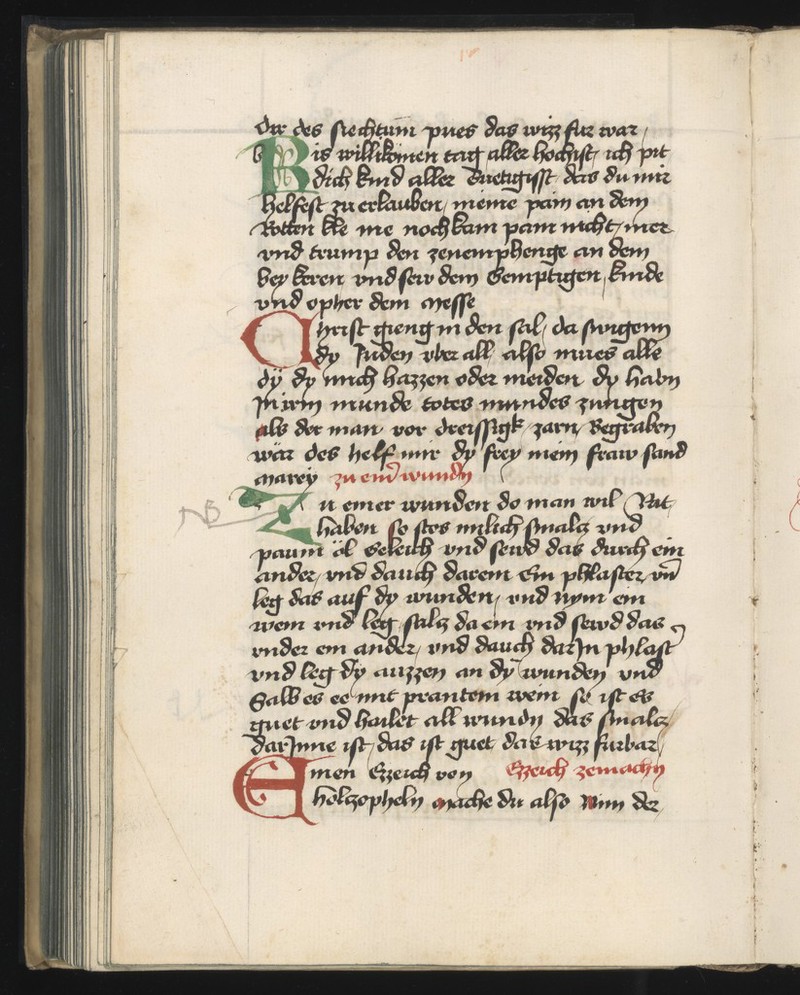 dir des siechtum pues das wizz fur war
Bis willikomen tag aller hochist ich pit
dich kind aller Guetigisst das du mir
helfest zu erlauben meine pain an dem
Rotten kle me noch kam pain nicht mer
vnd trump den zenemphenge an dem
bey keren vnd sew dem Senftigen kinde
vnd opher dem Messe
Christ gieng in den sal da swigenn
dy Juden vber all also mues alle
dy dy mich hazzen oder meiden dy habn
In irm munde totes mundes zungen
als der man vor dreissigk Jarn Begraben
wär des helf mir dy frey mein fraw sand
Marey zu einer wundn
Zu einer wunden do man wil Rat
haben so stos milich smalcz vnd
paum öl Geleich vnd sewd das durch ein
ander vnd dauch darein Ein phlaster vnd
leg das auf dy wunden vnd nym ein
wein vnd leg salcz da ein vnd sewd das
vnder ein ander vnd dauch darIn phlaster
vnd leg dy auzzen an dy wunden vnd
Salb es ee mit prantem wein so ist es
guet vnd hailet all wundn das smalcz
darInne ist das ist guet das wizz furbar
Einen Ezzeich von Ezzeich zemachn
holczopheln Mache du also Nim der